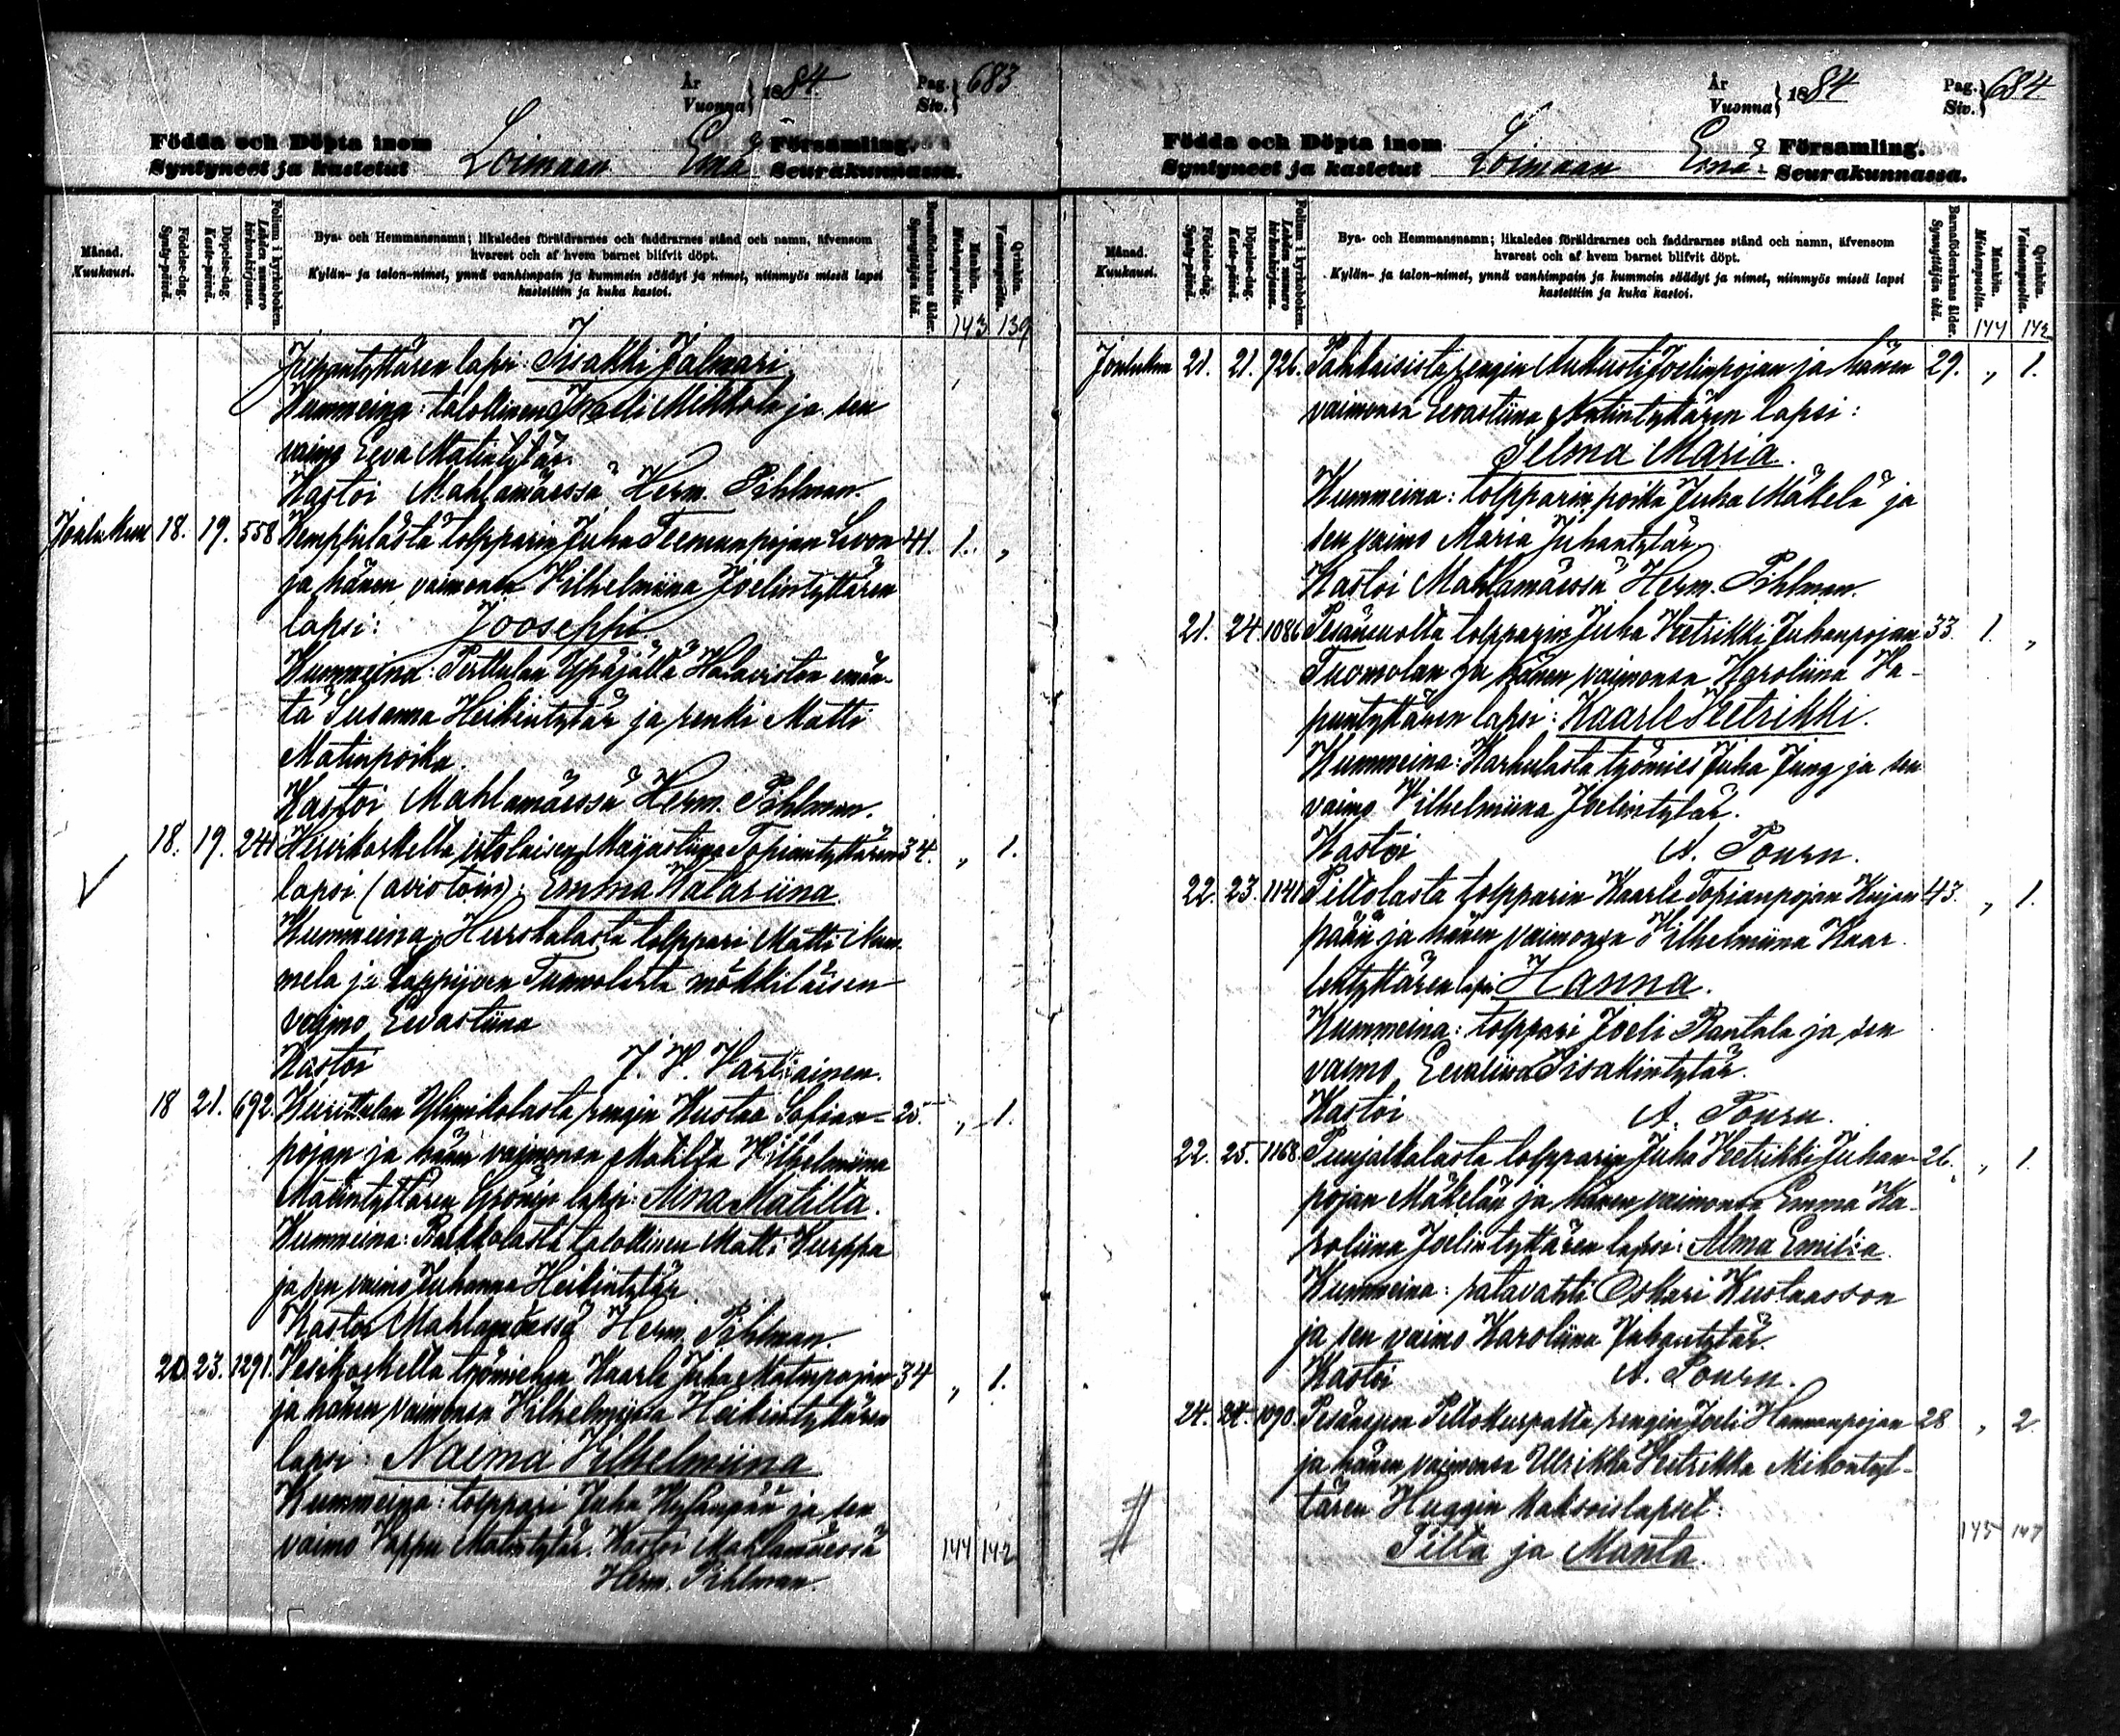 År
Vuonna } 1884 Pag. Siv. } 683
Födda och Döpta inom
Syntyneet ja kastetut Loimaan Emä Församling.
Seurakunnassa.
Månad. Kuukausi.
Födelse-dag. Synty-päivä.
Döpelse-dag. Kast-päivä.
Folium i kyrkoboken. Lehden numero kirkonkirjassa.
Bya- och Hemmansnamn; likaledes föräldrarnes och faddrarnes stånd och namn, äfvensom
hvarest och af hvem barnet blifvit döpt.
Kylän- ja talon-nimet, ynnä vanhimpain ja kummein säädyt ja nimet, niinmyös missä lapsi
kastettiin ja kuka kastoi.
Barnaföderskans ålder. Synnyttäjän ikä.
Mankön. Miehenpuolta.
Qvinkön. Vaimonpuolta.
143 139
lapsi: Iisakki Jalmari
Kummeina: talollinen Iisakki Mikkola ja sen
vaimo Eeva Matintytär.
Kastoi Mahlamäessä Herm. Pihlman.
Joulukuu 18. 19. 558 torpparin Juha Teemunpojan 41. 1. „
ja hänen vaimonsa Vilhelmiina Joelintyttären
lapsi: Jooseppi
Kummeina: Perttulan Ypäjältä emän-
tä Susanna Heikintytär ja renki Matti
Matinpoika.
Kastoi Mahlamäessä Herm. Pihlman.
18. 19. 241 Hirvikoskelta itsolaisen Maijastiina Topiantyttären 34. „ 1.
lapsi (aviotoin): Emma Katariina
Kummeina: torppari Matti Num-
mela ja Lappijoen Tuomolasta mökkiläisen
vaimo Eevastiina
Kastoi J. V. Vartiainen.
18 21. 692. Kurittulan rengin Kustaa 25. „ 1.
pojan ja hänen vaimonsa Matilta Vilhelmiina
Matintyttären lapsi: Aina Matilta.
Kummeina: talollinen Matti Kurppa
ja sen vaimo Juhanna Heikintytär
Kastoi Mahlamäessä Herm. Pihlman.
20. 23. 1291. Vesikoskelta työmiehen Kaarle Juha Matinpojan 34 „ 1.
ja hänen vaimonsa Vilhelmiina Heikintyttären
lapsi: Naema Vilhelmiina
Kummeina: torppari Juha Kylänpää ja sen
vaimo Vappu Matintytär. Kastoi Mahlamäessä
Herm. Pihlman.
144 142
År
Vuonna } 1884 Pag. Siv. } 684
Födda och Döpta inom
Syntyneet ja kastetut Loimaan Emä Församling.
Seurakunnassa.
Månad. Kuukausi.
Födelse-dag. Synty-päivä.
Döpelse-dag. Kast-päivä.
Folium i kyrkoboken. Lehden numero kirkonkirjassa.
Bya- och Hemmansnamn; likaledes föräldrarnes och faddrarnes stånd och namn, äfvensom
hvarest och af hvem barnet blifvit döpt.
Kylän- ja talon-nimet, ynnä vanhimpain ja kummein säädyt ja nimet, niinmyös missä lapsi
kastettiin ja kuka kastoi.
Barnaföderskans ålder. Synnyttäjän ikä.
Mankön. Miehenpuolta.
Qvinkön. Vaimonpuolta.
144 142
Joulukuu 21. 21. 926. rengin Aukusti Joelinpojan ja hänen 29. „ 1.
vaimonsa Eevastiina Antintyttären lapsi:
Selma Maria.
Kummeina: torpparin poika Juha Mäkelä ja
sen vaimo Maria Juhantytär
Kastoi Mahlamäessä Herm. Pihlman.
21. 24. 1086 Pesänsuolta torpparin Juha Vetrikki Juhanpojan 33. 1. „
Tuomolan ja hänen vaimonsa Karoliina Va-
puntyttären lapsi: Kaarle Vetrikki.
Kummeina: Karhulasta työmies Juha Jung ja sen
vaimo Vilhelmiina Joelintytär.
Kastoi A. Pouru.
22. 23. 1141 Piltolasta torpparin Kaarle Topianpojan Kujan- 43. „ 1.
pään ja hänen vaimonsa Vilhelmiina Kaar-
lentyttären lapsi Hanna.
Kummeina: torppari Joeli Rantala ja sen
vaimo Eevaliina Iisakintytär.
Kastoi A. Pouru.
22. 25. 1168. Puujalkalasta torpparin Juha Vetrikki Juhan- 26. „ 1.
pojan Mäkelän ja hänen vaimonsa Emma Ka-
roliina Joelintyttären lapsi: Alma Emilia.
Kummeina: ratavahti Oskari Kustaasson
ja sen vaimo Karoliina Juhantytär.
Kastoi A. Pouru.
24. 24. 1090. Pesänsuon rengin Joeli Hermanpojan 28 „ 2.
ja hänen vaimonsa Ulrikka Vetrikka Mikontyt-
tären Huggin kaksoislapset:
Tilta ja Manta.
145 147